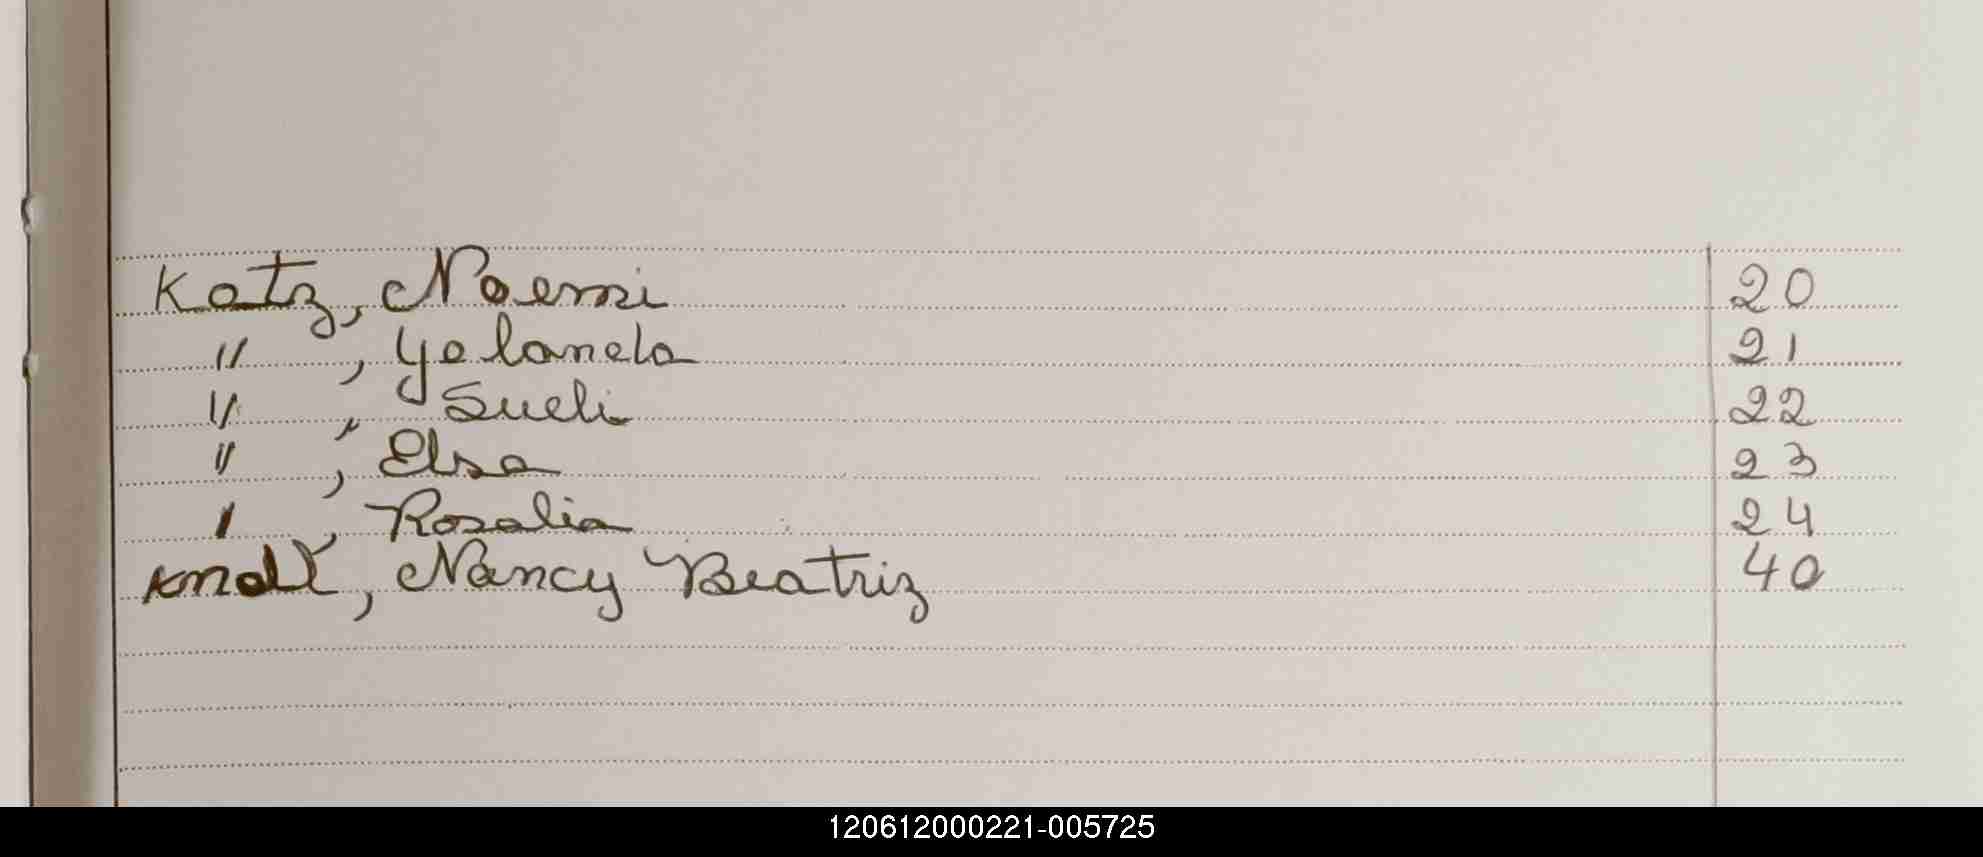 Katz, Noemi 20
" , Yolanda 21
" , Sueli 22
" , Elsa 23
" , Rosalia 24
Knoll, Nancy Beatriz 40
120612000221-005725